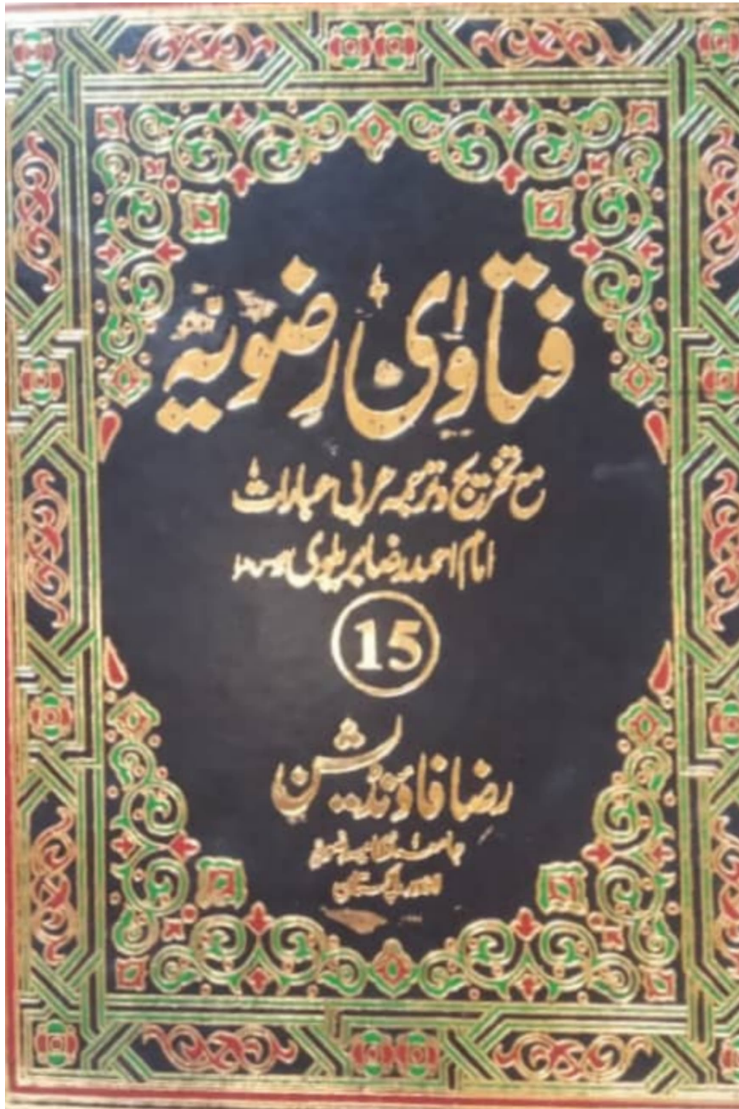 فتاوٰی رضویہ
مع تخریج و ترجمہ عربی عبارات
امام احمد رضا بریلوی
15
رضا فاؤنڈیشن
جامعہ نظامیہ رضویہ
لاہور پاکستان